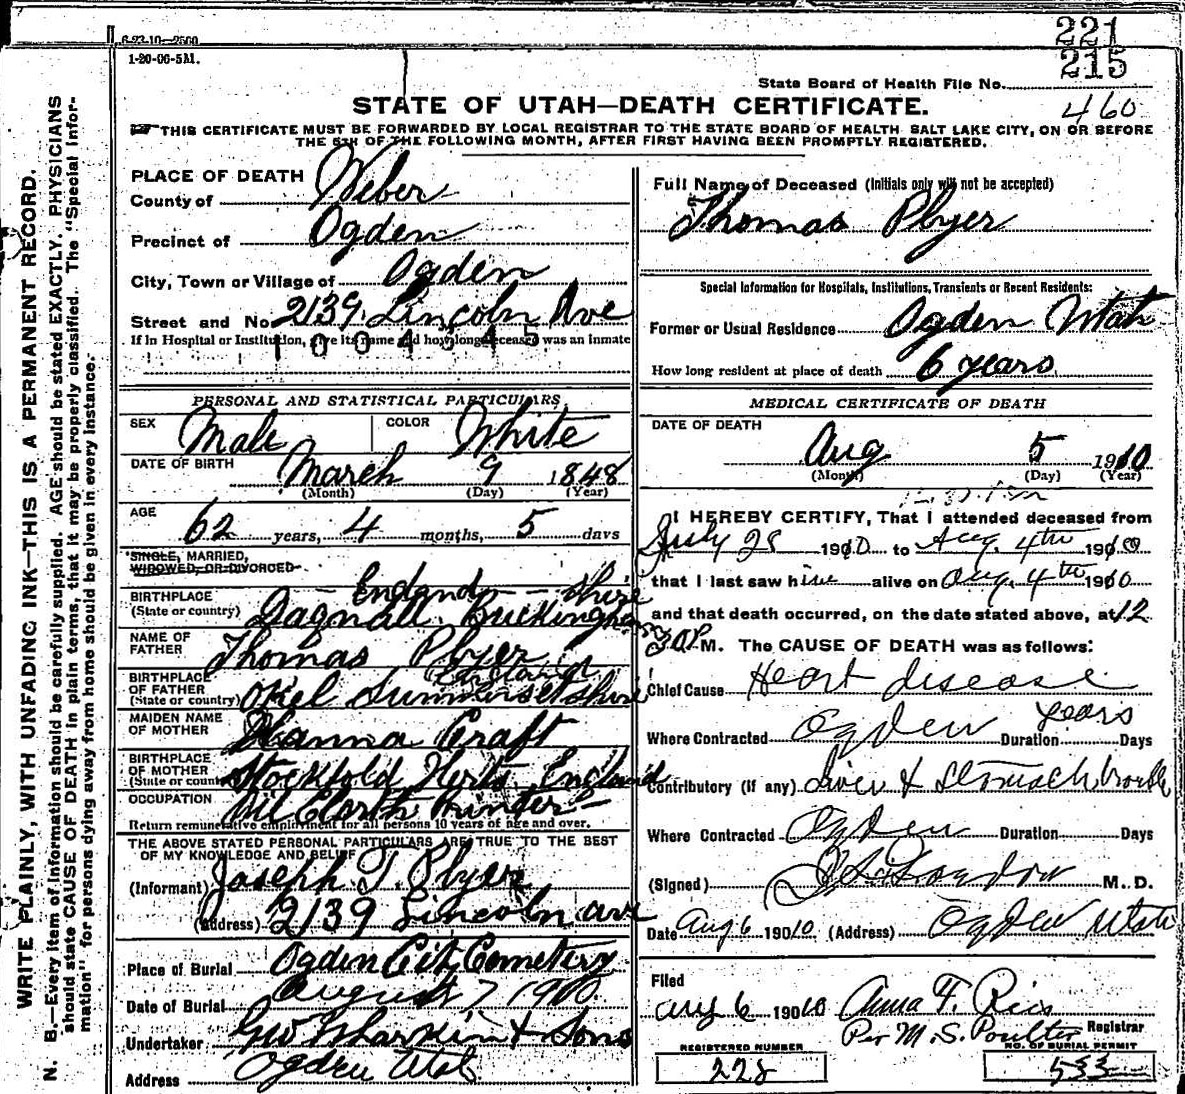 6-23-10—2500
1-20-06-5M.
221
215
State Board of Health File No. 460
STATE OF UTAH—DEATH CERTIFICATE.
THIS CERTIFICATE MUST BE FORWARDED BY LOCAL REGISTRAR TO THE STATE BOARD OF HEALTH SALT LAKE CITY, ON OR BEFORE
THE 5TH OF THE FOLLOWING MONTH, AFTER FIRST HAVING BEEN PROMPTLY REGISTERED.
WRITE PLAINLY, WITH UNFADING INK—THIS IS A PERMANENT RECORD.
N. B.—Every item of information should be carefully supplied. AGE should be stated EXACTLY. PHYSICIANS
should state CAUSE OF DEATH in plain terms, that it may be properly classified. The "Special Infor-
mation" for persons dying away from home should be given in every instance.
PLACE OF DEATH
County of Weber
Precinct of Ogden
City, Town or Village of Ogden
Street and No. 2139 Lincoln Ave
If in Hospital or Institution, give its name and how long deceased was an inmate
1004545
PERSONAL AND STATISTICAL PARTICULARS
SEX Male COLOR White
DATE OF BIRTH March 9 1848
(Month) (Day) (Year)
AGE 62 years, 4 months, 5 days
SINGLE, MARRIED,
WIDOWED, OR DIVORCED
BIRTHPLACE England
(State or country) Dagnall Buckinghamshire
NAME OF
FATHER Thomas Plyer
BIRTHPLACE England
OF FATHER
(State or country) Summersetshire
MAIDEN NAME
OF MOTHER Hanna Craft
BIRTHPLACE
OF MOTHER
(State or country) Herts. England
OCCUPATION Oil Cloth Printer
Return remunerative employment for all persons 10 years of age and over.
THE ABOVE STATED PERSONAL PARTICULARS ARE TRUE TO THE BEST
OF MY KNOWLEDGE AND BELIEF
(Informant) Joseph T. Plyer
(Address) 2139 Lincoln ave
Place of Burial Ogden City Cemetery
Date of Burial August 7 1910
Undertaker Geo Larkin & Sons
Address Ogden Utah
Full Name of Deceased (Initials only will not be accepted)
Thomas Plyer
Special Information for Hospitals, Institutions, Transients or Recent Residents:
Former or Usual Residence Ogden Utah
How long resident at place of death 6 years
MEDICAL CERTIFICATE OF DEATH
DATE OF DEATH
Aug 5 1910
(Month) (Day) (Year)
I HEREBY CERTIFY, That I attended deceased from
July 28 1910 to Aug. 4th 1910
that I last saw him alive on Aug. 4th 1910
and that death occurred, on the date stated above, at 12
30 P. M. The CAUSE OF DEATH was as follows:
Chief Cause Heart disease
Where Contracted Ogden Duration years Days
Contributory (if any) Liver & Stomach trouble
Where Contracted Ogden Duration Days
(Signed) M. D.
Date Aug 6 1910 (Address) Ogden Utah
Filed
Aug 6 1910 Anna F. Ries
Per M. S. Poulter Registrar
REGISTERED NUMBER NO. OF BURIAL PERMIT
228 533